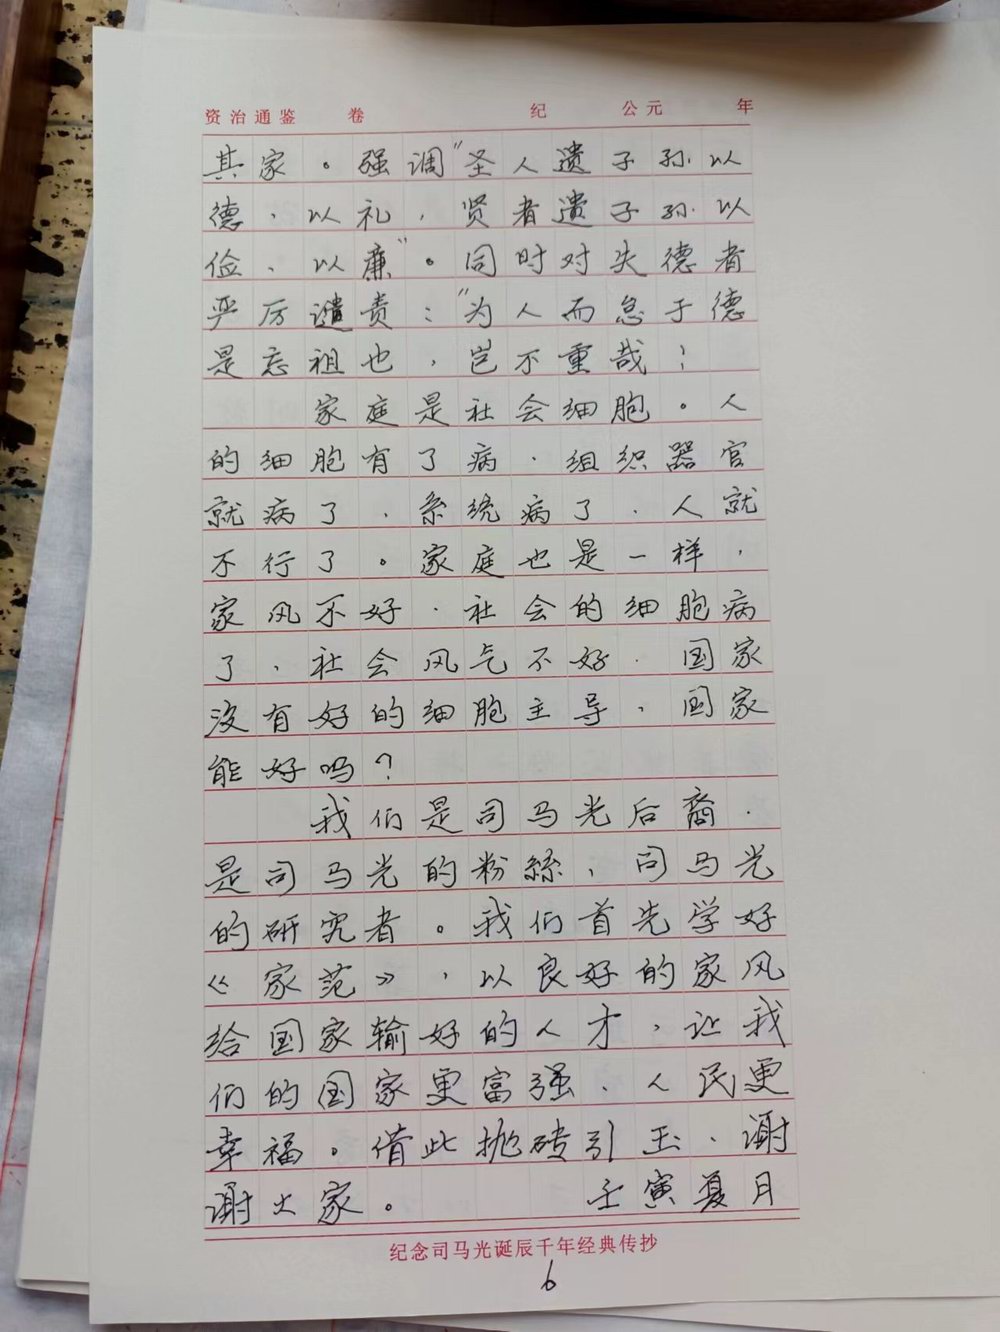 资治通鉴 卷 纪 公元 年
其家。强调“圣人遗子孙以
德、以礼，贤者遗子孙以
俭、以廉”。同时对失德者
严厉谴责：“为人而怠于德
是忘祖也，岂不重哉！
家庭是社会细胞。人
的细胞有了病，组织器官
就病了，系统病了，人就
不行了。家庭也是一样，
家风不好，社会的细胞病
了，社会风气不好，国家
没有好的细胞主导，国家
能好吗？
我们是司马光后裔，
是司马光的粉絲，司马光
的研究者。我们首先学好
《家范》，以良好的家风
给国家输好的人才，让我
们的国家更富强、人民更
幸福。借此抛砖引玉，谢
谢大家。 壬寅夏月
纪念司马光诞辰千年经典传抄
6